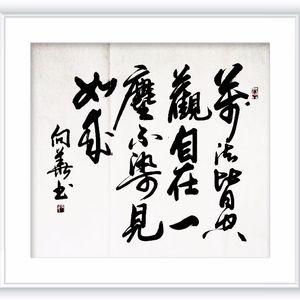 萬法皆空
觀自在一
塵不染見
如來
向華書